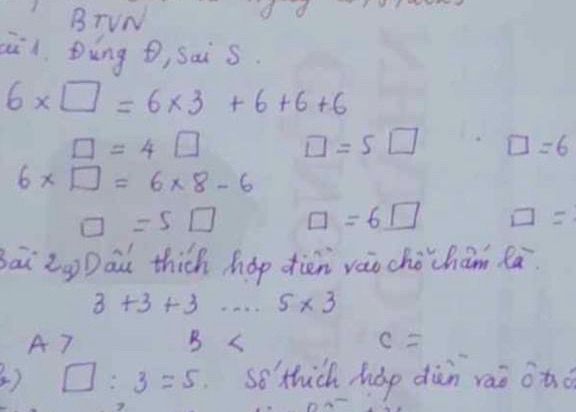 BTVN
1. Đúng Đ, sai S.
6 × □ = 6 × 3 + 6 + 6 + 6
□ = 4 □ □ = 5 □ □ = 6
6 × □ = 6 × 8 - 6
□ = 5 □ □ = 6 □ □ =
Bài 2 a) Dấu thích hợp điền vào chỗ chấm là
3 + 3 + 3 .... 5 × 3
A > B < C =
□ : 3 = 5. Số thích hợp điền vào ô